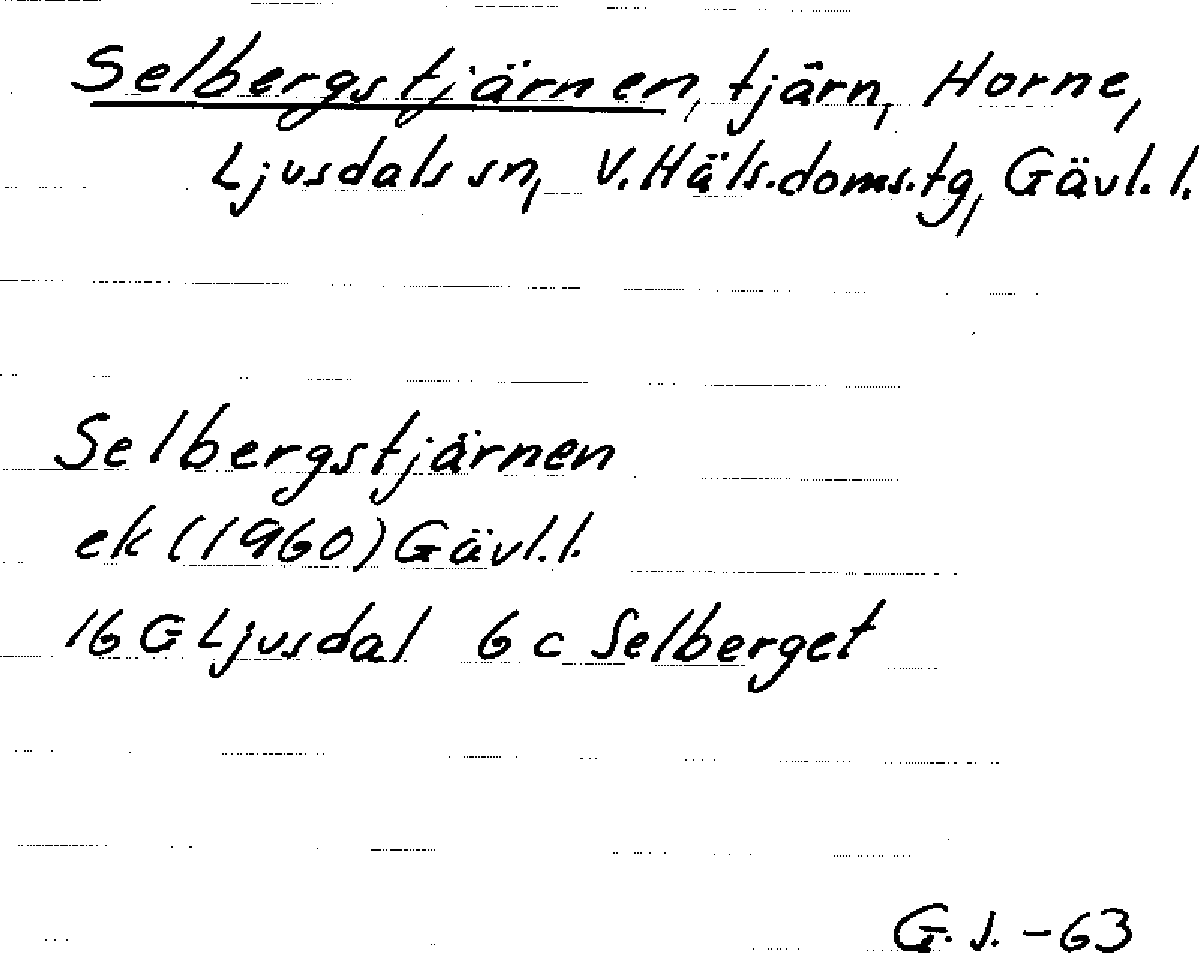 Selbergstjärnen, tjärn, Horne,
Ljusdals sn, V. Häls. doms. tg, Gävl. l.
Selbergstjärnen
ek (1960) Gävl. l.
16 G Ljusdal 6 c Selberget
G. J. -63